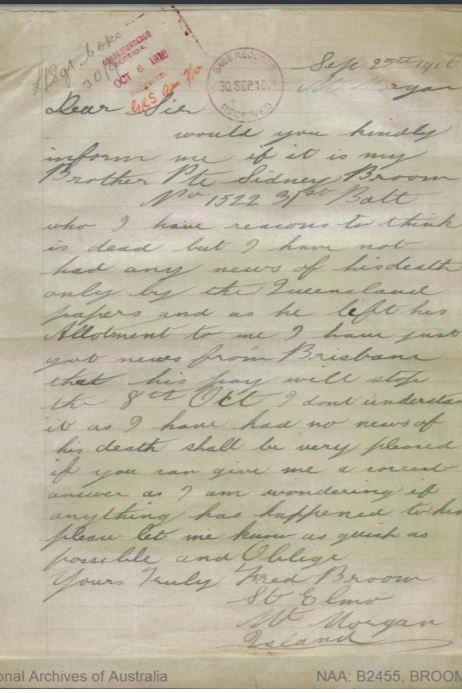 L/Sgt
OCT 6 1916
BASE RECORDS
30 SEP. 1916
RECEIVED
Sep 25th 1916
Mt Morgan
Dear Sir
would you kindly
inform me if it is my
Brother Pte Sidney Broom
No 1522 31st Batt
who I have reasons to think
is dead but I have not
had any news of his death
only by the Queensland
papers and as he left his
Allotment to me I have just
got news from Brisbane
that his pay will stop
the 8th Oct I dont understa
it as I have had no news of
his death shall be very pleased
if you can give me a correct
answer as I am wondering if
anything has happened to him
please let me know as quick as
possible and Oblige
Yours Truly Fred Broom
St Elmo
Mt Morgan
Island
onal Archives of Australia
NAA: B2455, BROOM